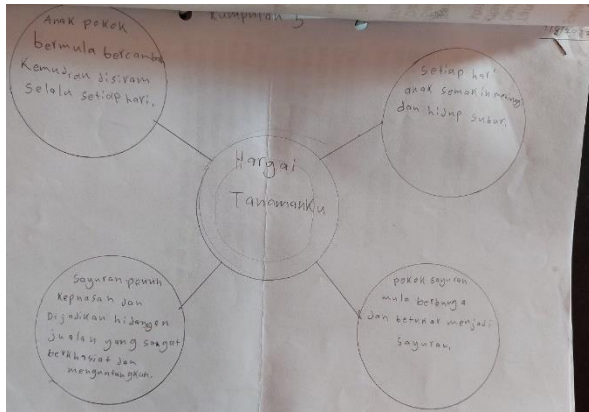 Kumpulan 5
Anak pokok
bermula bercambah
Kemudian disiram
Selalu setiap hari.
Setiap hari
anak semakin meninggi
dan hidup subur.
Hargai
Tanamanku
Sayuran penuh
Kepuasan dan
Dijadikan hidangan
jualan yang sangat
berkhasiat dan
menguntungkan.
pokok sayuran
mula berbunga
dan bertukar menjadi
sayuran.